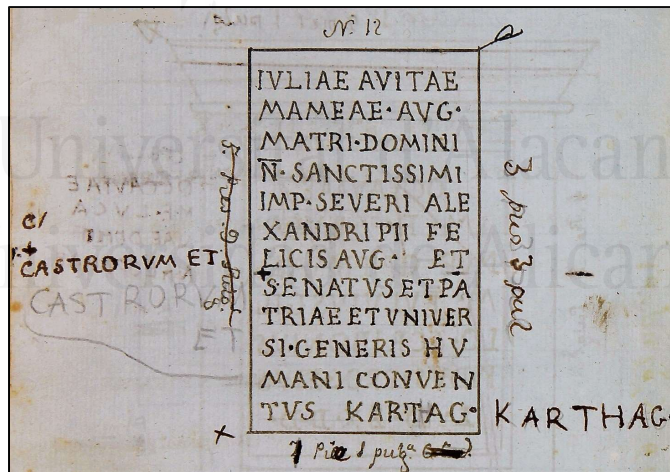 N. 12
IVLIAE AVITAE
MAMEAE · AVG ·
MATRI · DOMINI
N̅ · SANCTISSIMI
IMP · SEVERI ALE
XANDRI PII FE
LICIS AVG · ET
+ SENATVS ET PA
TRIAE ET VNIVER
SI · GENERIS HV
MANI CONVEN
TVS KARTAG ·
+
CASTRORVM ET
CASTRORVM
ET
3 pies 3 pul
KARTHAG
Universitat d'Alacant
Universidad de Alicante